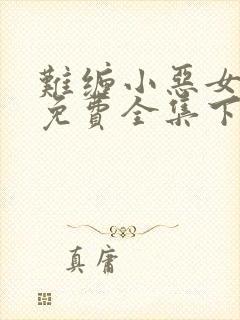 難缠小惡女
免費全集下
真庸